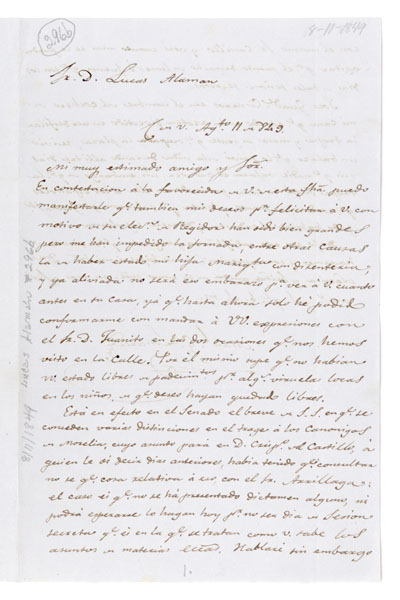 296b
8-11-1849
Sr. D. Lucas Alaman
C. de V. Agto. 11 de 849.
Mi muy estimado amigo y Sor.
En contestacion á la favorecida de V. de esta fha. puedo
manifestarle qe. tambien mis deseos pa. felicitar á V. con
motivo de su elecn. de Regidor han sido bien grandes
pero me han impedido la jornada entre otras causas
la de haber estado mi hija Mariqta. con disenteria;
y ya aliviada no será eso embarazo pa. ver á V. cuanto
antes en su casa, ya qe. hasta ahora solo he podido
conformarme con mandar á VV. expresiones con
el Sr. D. Juanito en las dos ocasiones qe. nos hemos
visto en la calle. Por él mismo supe qe. no habian
VV. estado libres de padecimtos. pr. alga. viruela locas
en los niños, de qe. deseo hayan quedado libres.
Está en efecto en el Senado el breve de S.S. en qe. se
conceden varias distinciones en el traje á los Canonigos
de Morelia, cuyo asunto para en D. Crisp. del Castillo, á
quien le oi decir dias anteriores, habia tenido qe. consultar
no se qe. cosa relativa á eso, con el Sr. Arrillaga:
el caso es qe. no se há presentado dictamen alguno, ni
podrá esperarse lo hagan hoy pr. no ser dia de Sesion
secreta qe. es en la qe. se tratan como V. sabe los
asuntos de materias ecca. Hablaré sin embargo
1.